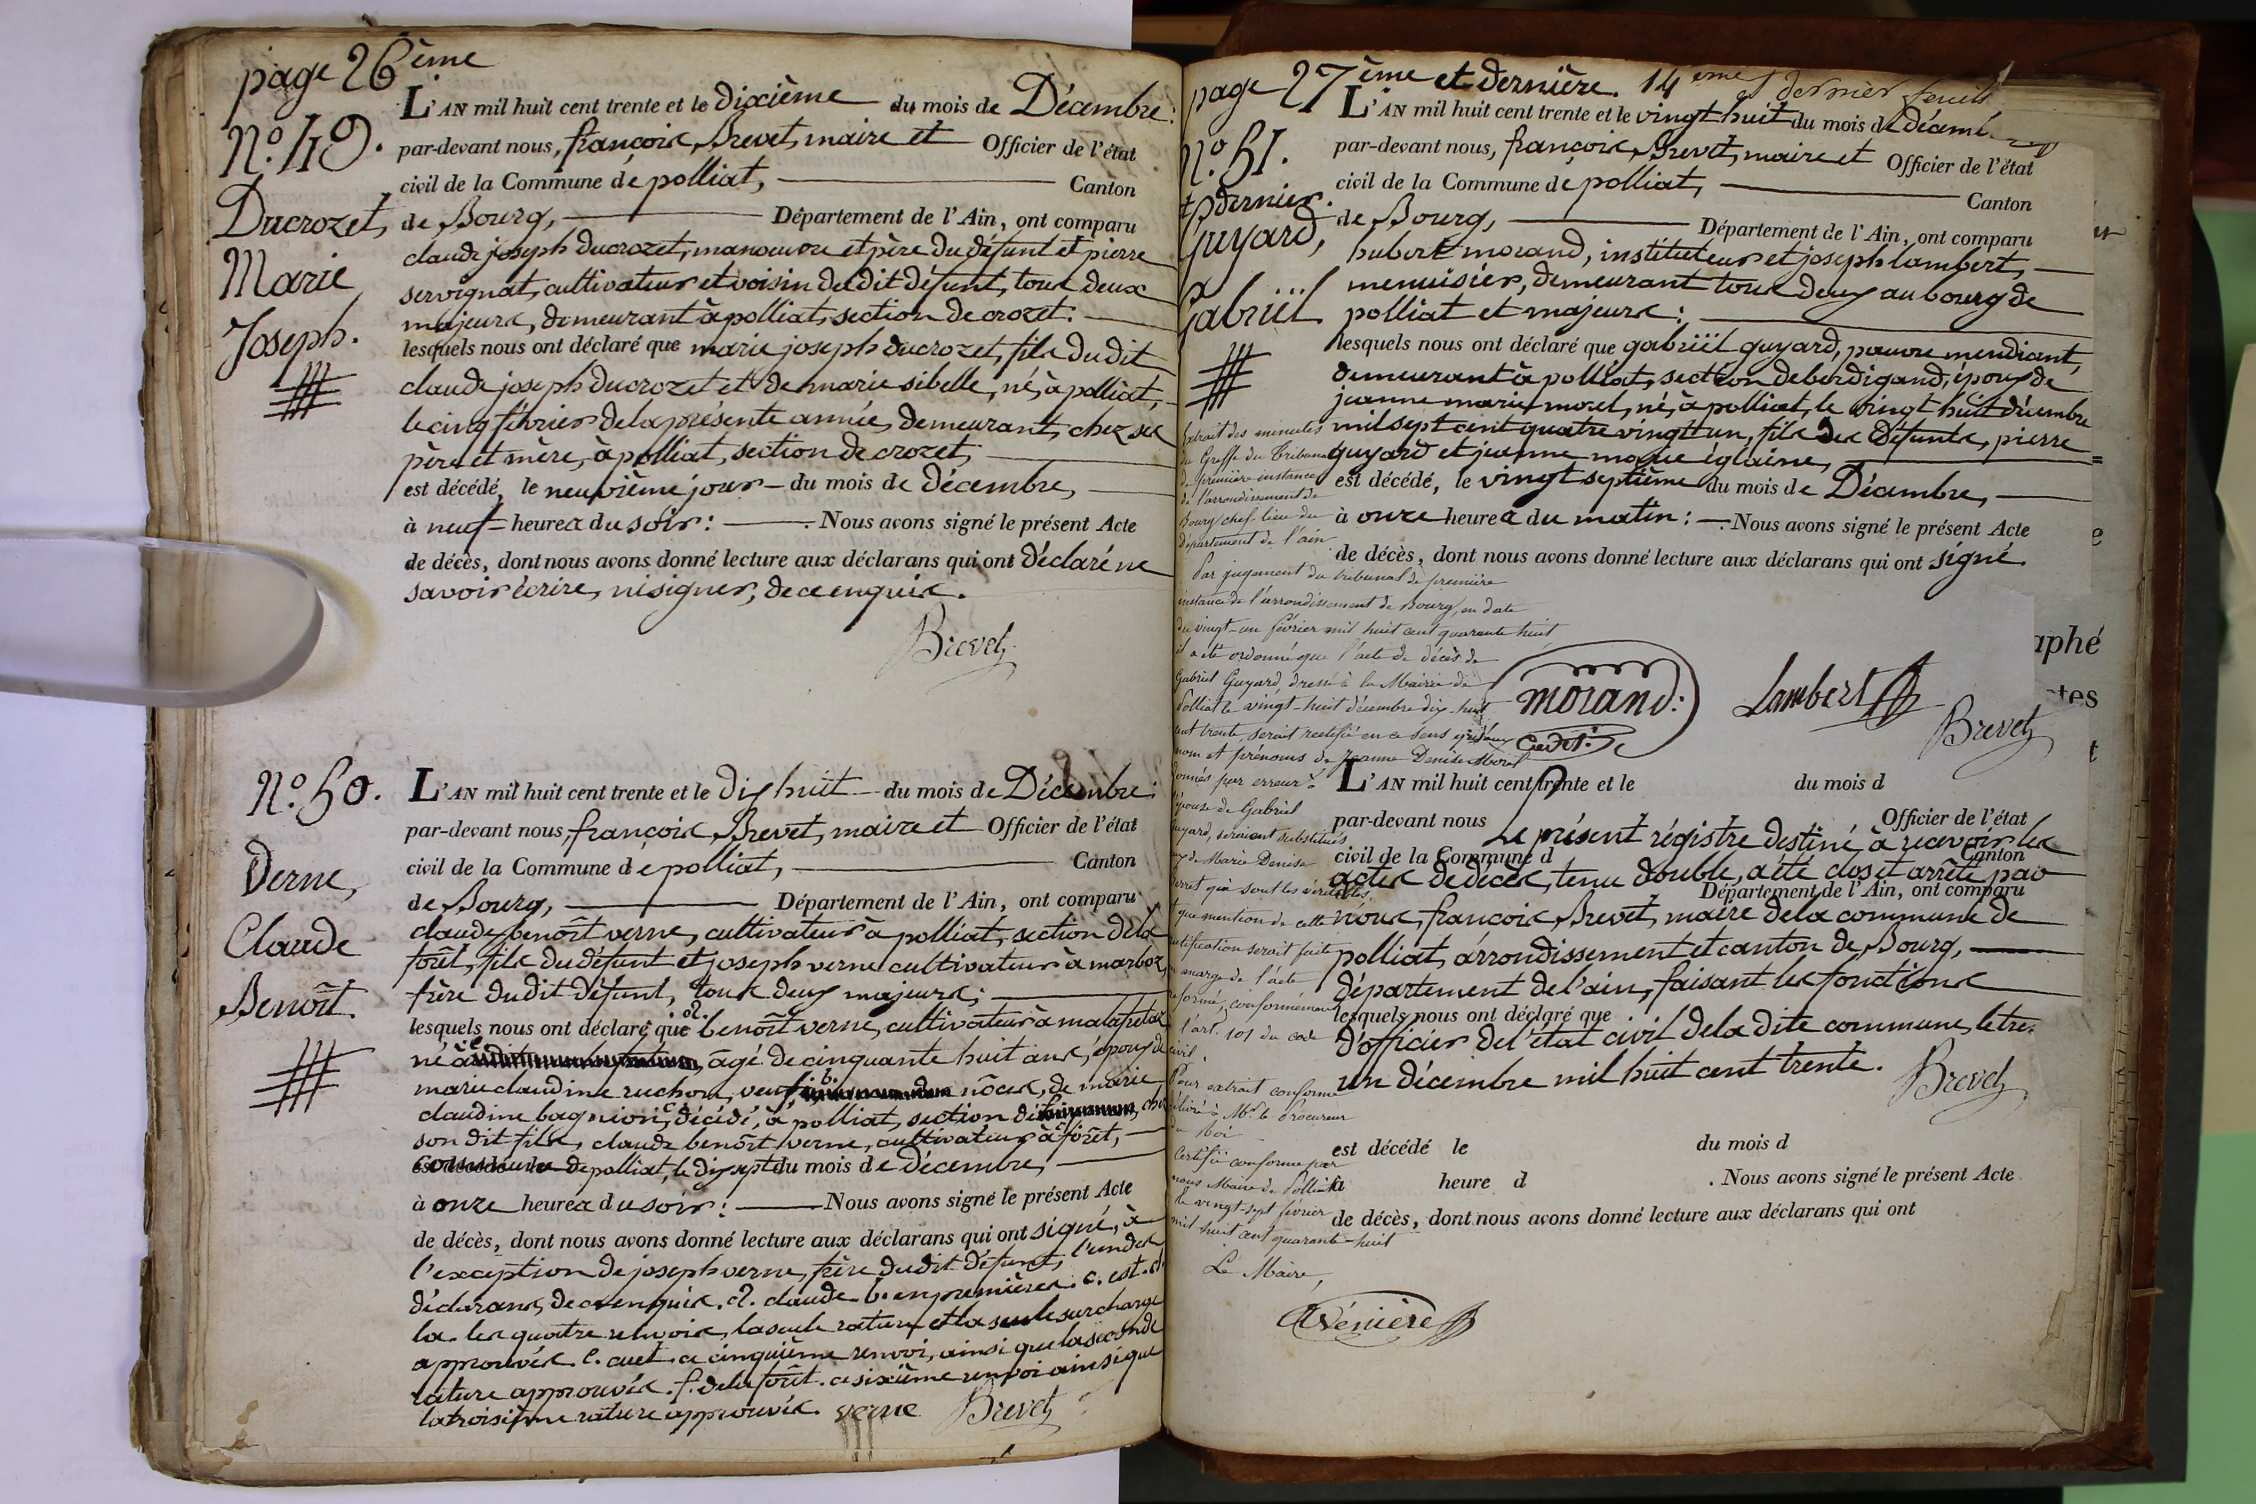 page 26ème
N.º 49.
Ducrozet,
Marie
Joseph.
L'AN mil huit cent trente et le dixième du mois de Décembre:
par-devant nous, françois Brevet, maire et Officier de l'état
civil de la Commune de polliat, Canton
de Bourg, Département de l'Ain, ont comparu
claude joseph ducrozet, manoeuvre et père du défunt et pierre
servignat, cultivateur et voisin du dit défunt, tous deux
majeurs, demeurant à polliat, section de crozet:
lesquels nous ont déclaré que marie joseph ducrozet, fils du dit
claude joseph ducrozet et de marie sibelle, né, à polliat,
le cinq février de la présente année, demeurant, chez ses
père et mère, à polliat, section de crozet,
est décédé, le neuvième jour du mois de décembre,
à neuf heures du soir: Nous avons signé le présent Acte
de décès, dont nous avons donné lecture aux déclarans qui ont déclaré ne
savoir écrire, ni signer, de ce enquis.
Brevet
N.º 50.
Verne,
Claude
Benoît.
L'AN mil huit cent trente et le dix huit du mois de Décembre:
par-devant nous, françois Brevet, maire et Officier de l'état
civil de la Commune de polliat, Canton
de Bourg, Département de l'Ain, ont comparu
claude benoît verne, cultivateur à polliat, section de la
forêt, fils du défunt et joseph verne cultivateur à marboz,
frère du dit défunt, tous deux majeurs;
lesquels nous ont déclaré que benoît verne, cultivateur à malafretaz
né à âgé de cinquante huit ans, époux de
marie claudine ruchon, veuf, nôces, de marie
claudine bagnion, décédé, à polliat, section de chez
son dit fils, claude benoît verne, cultivateur à forêt,
de polliat, le dix sept du mois de décembre,
à onze heures du soir: Nous avons signé le présent Acte
de décès, dont nous avons donné lecture aux déclarans qui ont signé, à
l'exception de joseph verne, frère du dit défunt, l'un des
déclarans, de ce enquis. a. claude b. en premières. c. est. d.
la. les quatre renvois, la seule rature et la seule surcharge
approuvés. e. cuet. ce cinquième renvoi, ainsi que la seconde
rature approuvés. f. de la forêt. ce sixième renvoi ainsi que
la troisième rature approuvés. verne Brevet
page 27ème et dernière. 14ème et dernier feuil
N.º 51.
et dernier.
Guyard,
Gabriël
L'AN mil huit cent trente et le vingt huit du mois de décem
par-devant nous, françois Brevet, maire et Officier de l'état
civil de la Commune de polliat, Canton
de Bourg, Département de l'Ain, ont comparu
hubert morand, instituteur et joseph lambert,
menuisier, demeurant tous deux au bourg de
polliat et majeurs:
lesquels nous ont déclaré que gabriël guyard, pauvre mendiant,
demeurant à polliat, section de berdigand, époux de
jeanne marie morel, né, à polliat, le vingt huit décembre
mil sept cent quatre vingt un, fils des défunts, pierre
guyard et jeanne marie églaine,
est décédé, le vingt septième du mois de Décembre,
à onze heures du matin: Nous avons signé le présent Acte
de décès, dont nous avons donné lecture aux déclarans qui ont signé.
morand. Lambert
Brevet
Extrait des minutes
du Greffe du Tribunal
de première instance
de l'arrondissement de
Bourg chef-lieu du
département de l'ain
Par jugement du tribunal de première
instance de l'arrondissement de Bourg, en date
du vingt-un février mil huit cent quarante huit
il a été ordonné que l'acte de décès de
Gabriel Guyard, dressé à la Mairie de
Polliat le vingt-huit décembre dix-huit
cent trente, serait rectifié en ce sens qu'aux
nom et prénoms de Jeanne Denise Morel
donnés par erreur à
l'épouse de Gabriel
Guyard, seraient substitués
ceux de Marie Denise
qui sont les véritables,
et que mention de cette
rectification serait faite
en marge de l'acte
réformé, conformément
à l'art. 101 du code
civil.
Pour extrait conforme
délivré à Mr. le Procureur
du Roi
Certifié conforme par
nous Maire de Polliat
le vingt-sept février
mil huit cent quarante-huit
Le Maire,
Vénière
L'AN mil huit cent trente et le du mois d
par-devant nous Officier de l'état
civil de la Commune d Canton
Département de l'Ain, ont comparu
Le présent régistre destiné à recevoir les
actes de décès, tenu double, a été clos et arrêté par
nous, françois Brevet, maire de la commune de
polliat, arrondissement et canton de Bourg,
département de l'ain, faisant les fonctions
lesquels nous ont déclaré que
d'officier de l'état civil de la dite commune, le tre.
un décembre mil huit cent trente.
Brevet
est décédé le du mois d
à heure d . Nous avons signé le présent Acte
de décès, dont nous avons donné lecture aux déclarans qui ont
aphé